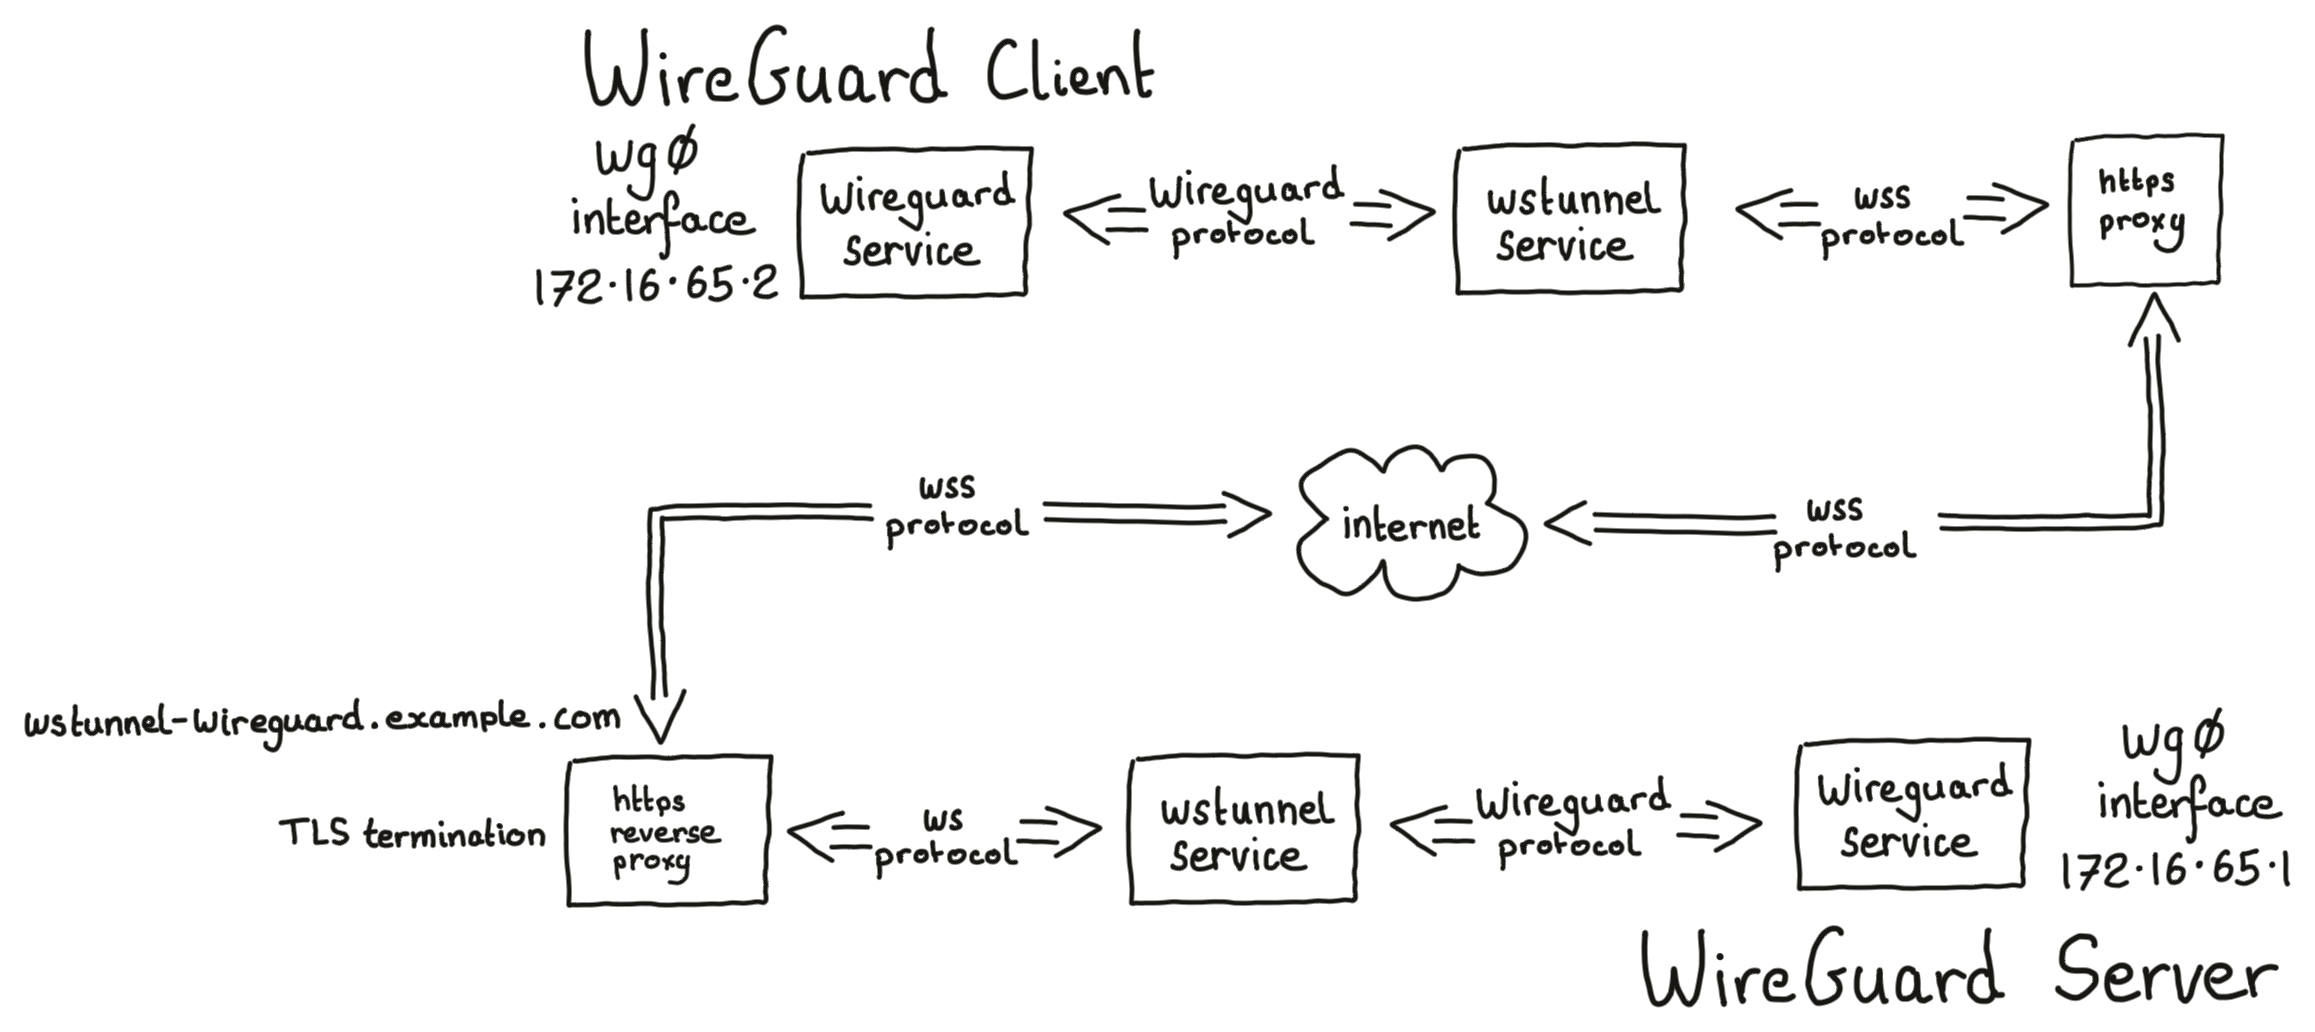 WireGuard Client
wgØ
interface
172.16.65.2
Wireguard
service
Wireguard
protocol
wstunnel
service
wss
protocol
https
proxy
wss
protocol
internet
wss
protocol
wstunnel-wireguard.example.com
TLS termination
https
reverse
proxy
ws
protocol
wstunnel
service
Wireguard
protocol
Wireguard
service
wgØ
interface
172.16.65.1
WireGuard Server